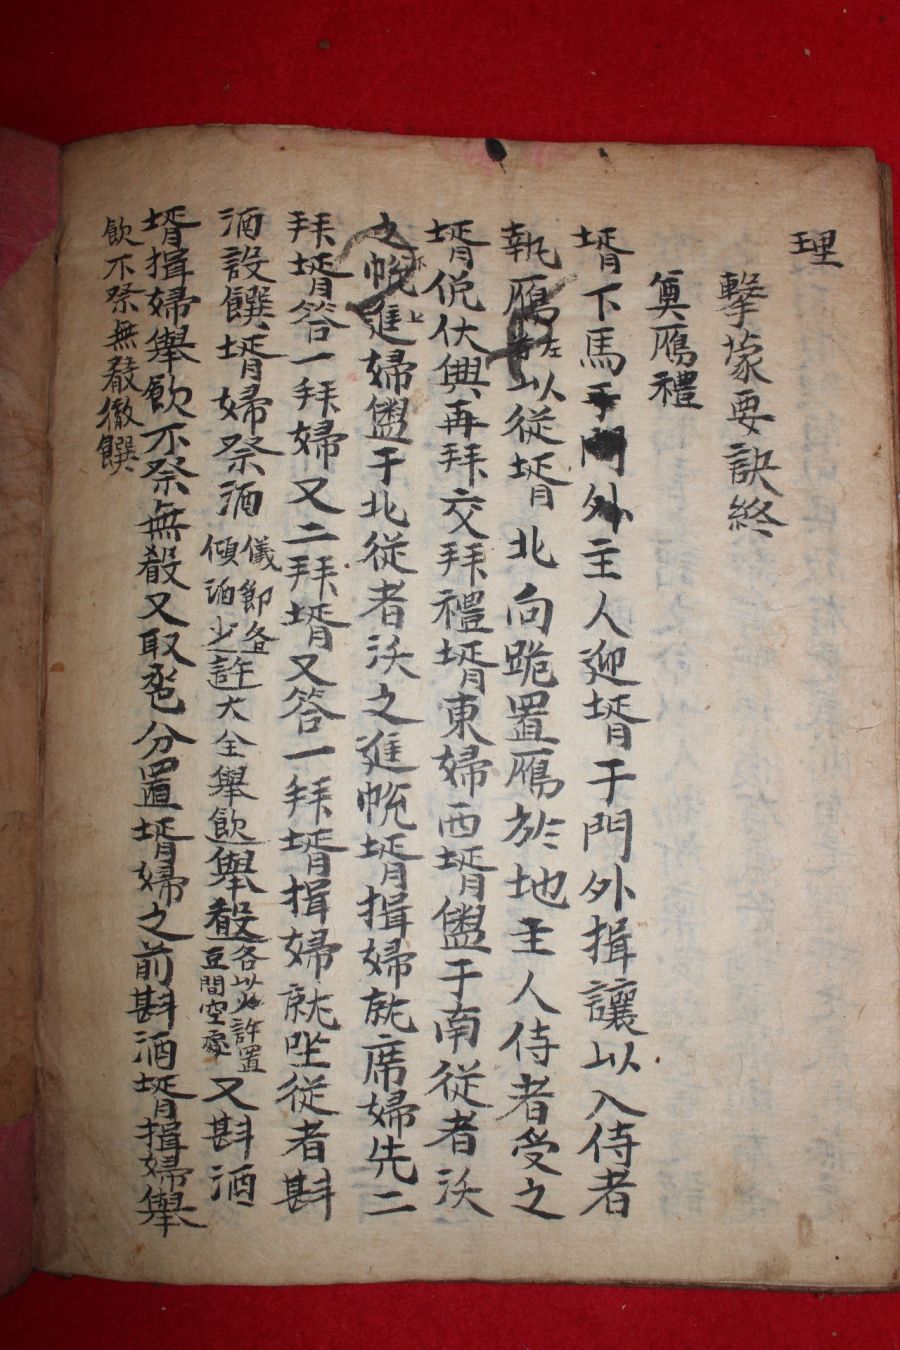 理
擊蒙要訣終
奠鴈禮
壻下馬于門外主人迎壻于門外揖讓以入侍者
執鴈左首以從壻北向跪置鴈於地主人侍者受之
壻俛伏興再拜交拜禮壻東婦西壻盥于南從者沃
之帨進婦盥于北從者沃之進帨壻揖婦就席婦先二
拜壻答一拜婦又二拜壻又答一拜壻揖婦就坐從者斟
酒設饌壻婦祭酒儀節各傾酒少許大全舉飮舉殽各以少許置豆間空處又斟酒
壻揖婦舉飮不祭無殽又取巹分置壻婦之前斟酒壻揖婦舉
飮不祭無殽徹饌